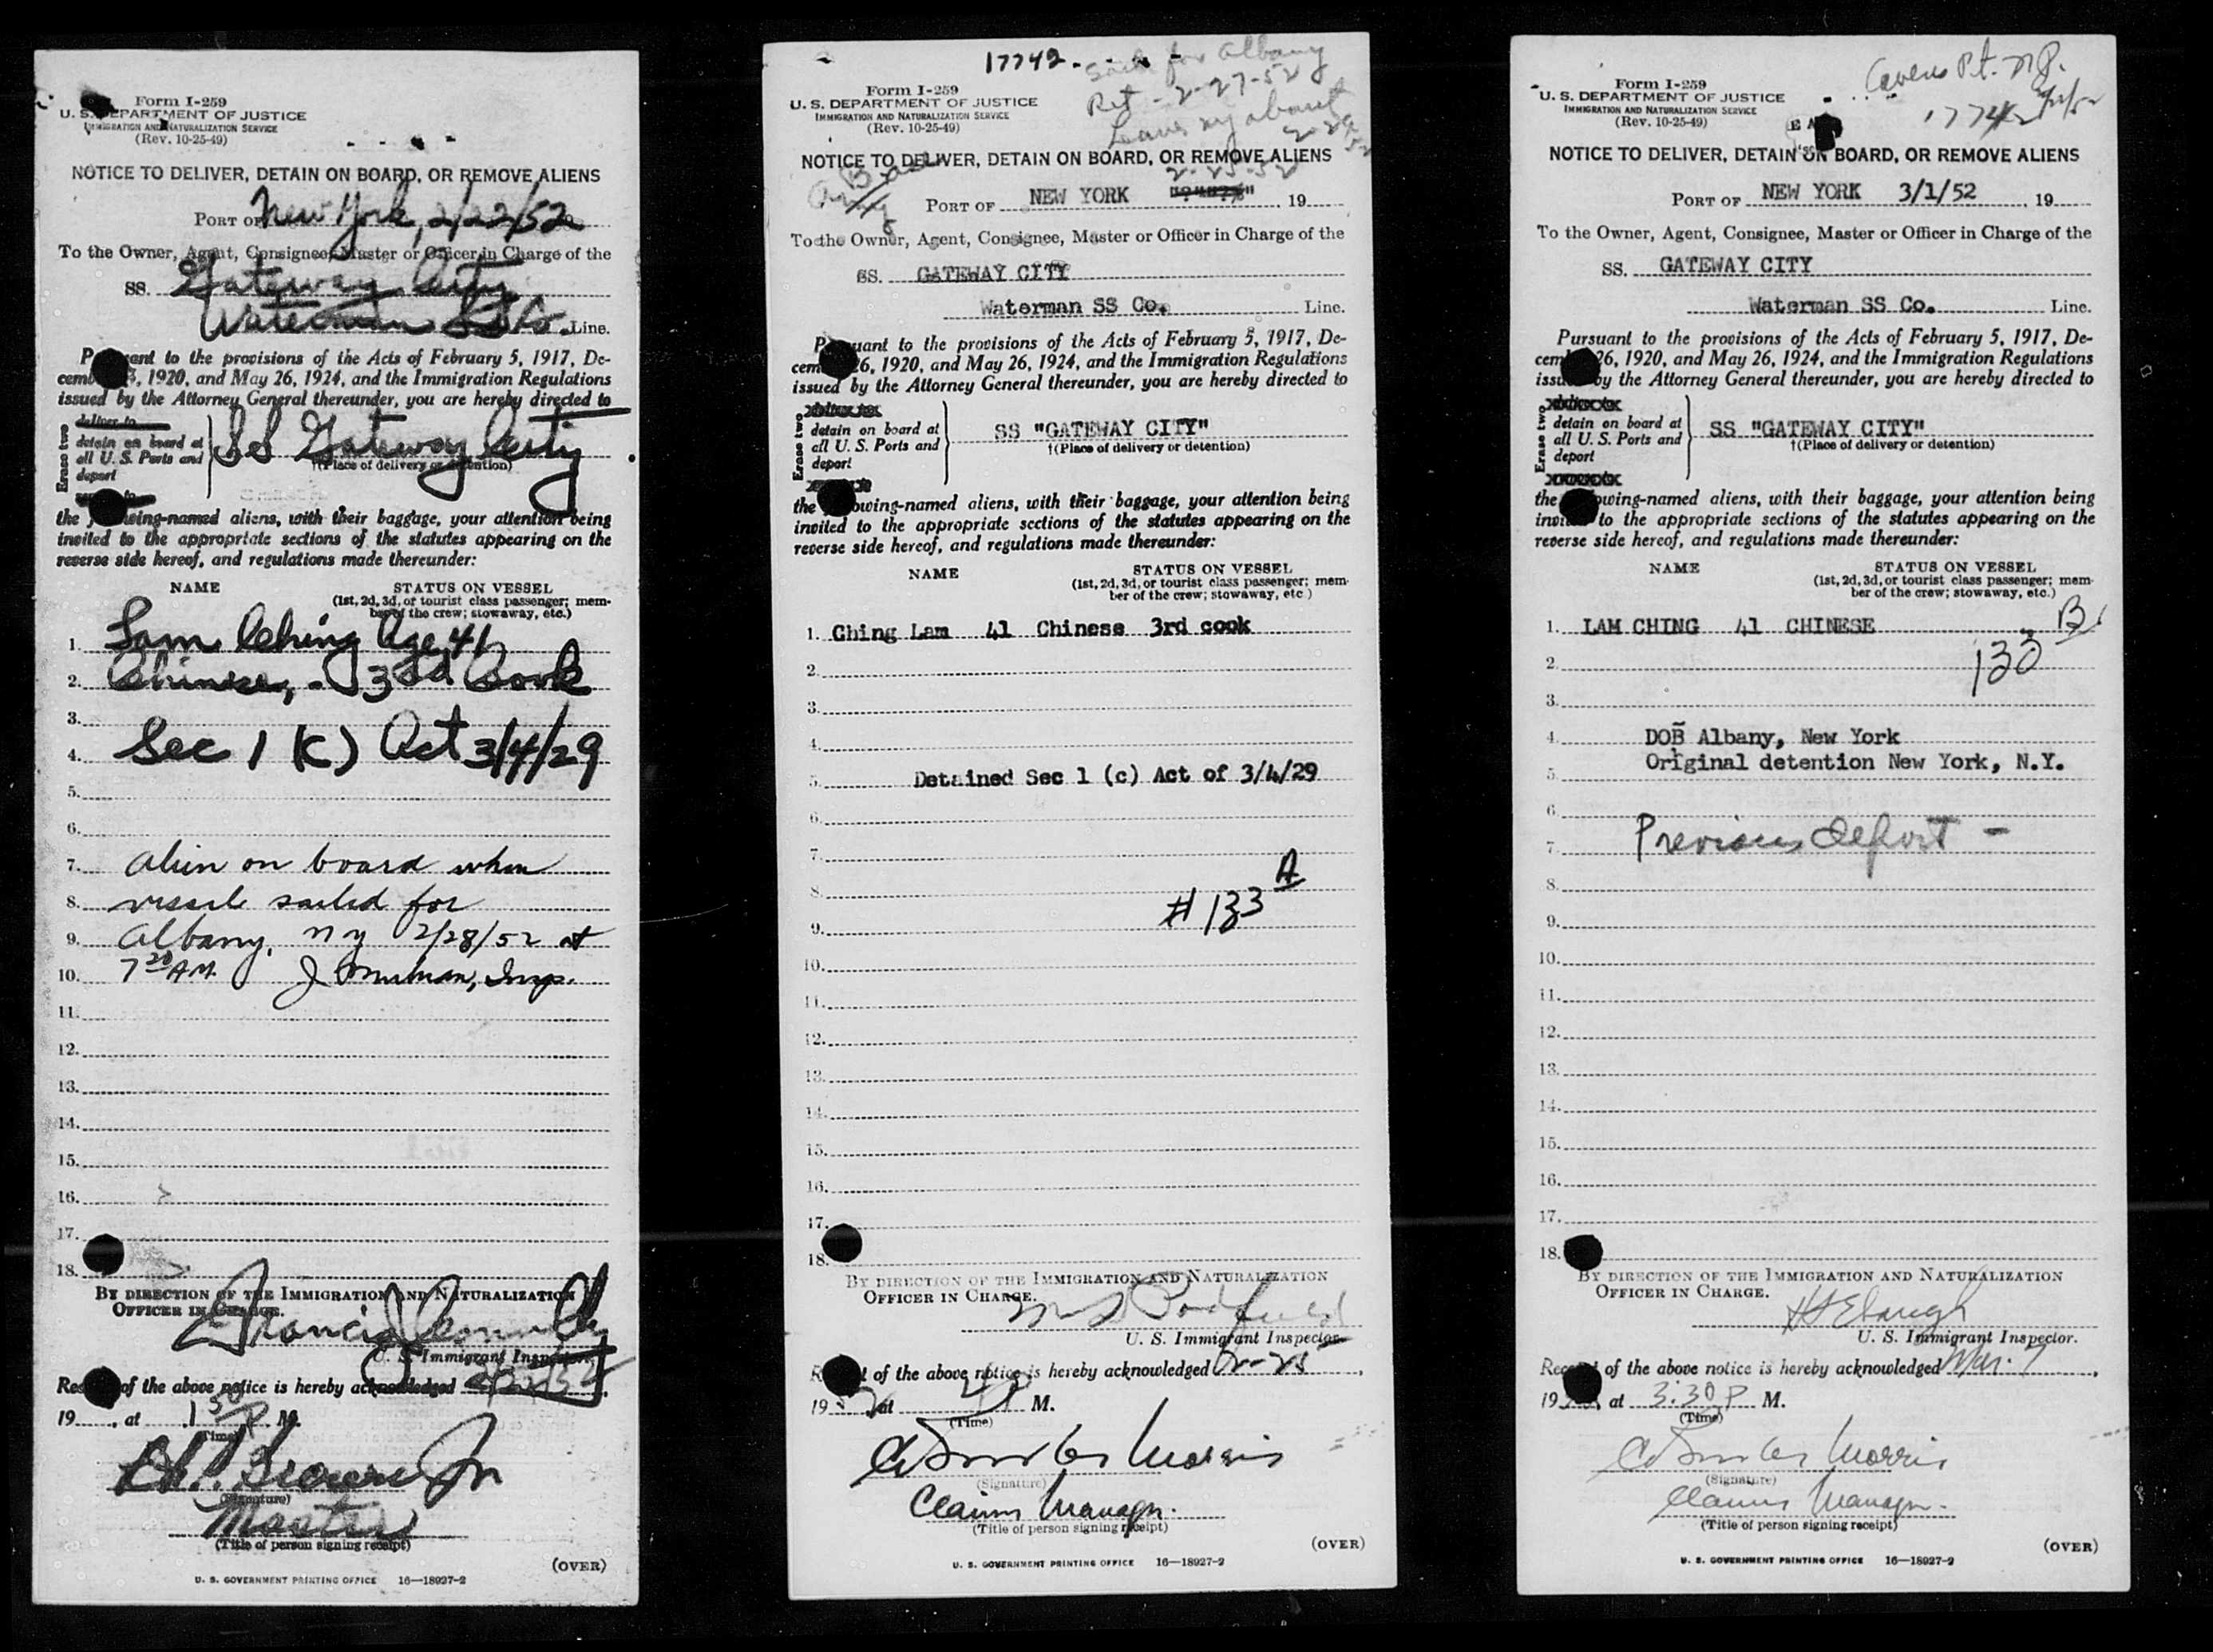 Form I-259
U. S. DEPARTMENT OF JUSTICE
IMMIGRATION AND NATURALIZATION SERVICE
(Rev. 10-25-49)
NOTICE TO DELIVER, DETAIN ON BOARD, OR REMOVE ALIENS
PORT OF New York, 2/22/52
To the Owner, Agent, Consignee, Master or Officer in Charge of the
SS. Gateway City
Waterman SS Co. Line.
Pursuant to the provisions of the Acts of February 5, 1917, De-
cember 26, 1920, and May 26, 1924, and the Immigration Regulations
issued by the Attorney General thereunder, you are hereby directed to
Erase two
deliver to
detain on board at
all U. S. Ports and
deport
SS Gateway City
†(Place of delivery or detention)
the following-named aliens, with their baggage, your attention being
invited to the appropriate sections of the statutes appearing on the
reverse side hereof, and regulations made thereunder:
NAME STATUS ON VESSEL
(1st, 2d, 3d, or tourist class passenger; mem-
ber of the crew; stowaway, etc.)
1. Lam Ching Age 41
2. Chinese, - 3rd Cook
3.
4. Sec 1 (C) Act 3/4/29
5.
6.
7. Alien on board when
8. vessel sailed for
9. Albany, NY 2/28/52 at
10. 7 20 AM. J Insp.
11.
12.
13.
14.
15.
16.
17.
18.
BY DIRECTION OF THE IMMIGRATION AND NATURALIZATION
OFFICER IN CHARGE.
Francis
U. S. Immigrant Inspector.
Receipt of the above notice is hereby acknowledged 2/22/52,
19 , at 1 30 P M.
(Time)
Brown Jr
(Signature)
Master
(Title of person signing receipt)
(OVER)
U. S. GOVERNMENT PRINTING OFFICE 16—18927-2
17742
Sails for Albany
Ret - 2-27-52
Leaves NY about
2-29-52
Form I-259
U. S. DEPARTMENT OF JUSTICE
IMMIGRATION AND NATURALIZATION SERVICE
(Rev. 10-25-49)
NOTICE TO DELIVER, DETAIN ON BOARD, OR REMOVE ALIENS
Army Base
2-25-52
PORT OF NEW YORK , 19
To the Owner, Agent, Consignee, Master or Officer in Charge of the
SS. GATEWAY CITY
Waterman SS Co. Line.
Pursuant to the provisions of the Acts of February 5, 1917, De-
cember 26, 1920, and May 26, 1924, and the Immigration Regulations
issued by the Attorney General thereunder, you are hereby directed to
Erase two
detain on board at
all U. S. Ports and
deport
SS "GATEWAY CITY"
†(Place of delivery or detention)
the following-named aliens, with their baggage, your attention being
invited to the appropriate sections of the statutes appearing on the
reverse side hereof, and regulations made thereunder:
NAME STATUS ON VESSEL
(1st, 2d, 3d, or tourist class passenger; mem-
ber of the crew; stowaway, etc.)
1. Ching Lam 41 Chinese 3rd cook
2.
3.
4.
5. Detained Sec 1 (c) Act of 3/4/29
6.
7.
8. # 133 A
9.
10.
11.
12.
13.
14.
15.
16.
17.
18.
BY DIRECTION OF THE IMMIGRATION AND NATURALIZATION
OFFICER IN CHARGE.
U. S. Immigrant Inspector
Receipt of the above notice is hereby acknowledged 2-25,
1952 at M.
(Time)
Morris
(Signature)
Claims Manager.
(Title of person signing receipt)
(OVER)
U. S. GOVERNMENT PRINTING OFFICE 16—18927-2
Cavens Pt. N.J.
17742
Form I-259
U. S. DEPARTMENT OF JUSTICE
IMMIGRATION AND NATURALIZATION SERVICE
(Rev. 10-25-49)
NOTICE TO DELIVER, DETAIN ON BOARD, OR REMOVE ALIENS
PORT OF NEW YORK 3/1/52 , 19
To the Owner, Agent, Consignee, Master or Officer in Charge of the
SS. GATEWAY CITY
Waterman SS Co. Line.
Pursuant to the provisions of the Acts of February 5, 1917, De-
cember 26, 1920, and May 26, 1924, and the Immigration Regulations
issued by the Attorney General thereunder, you are hereby directed to
Erase two
detain on board at
all U. S. Ports and
deport
SS "GATEWAY CITY"
†(Place of delivery or detention)
the following-named aliens, with their baggage, your attention being
invited to the appropriate sections of the statutes appearing on the
reverse side hereof, and regulations made thereunder:
NAME STATUS ON VESSEL
(1st, 2d, 3d, or tourist class passenger; mem-
ber of the crew; stowaway, etc.)
1. LAM CHING 41 CHINESE
2. 133 B
3.
4. DOB Albany, New York
5. Original detention New York, N.Y.
6.
7. Previous deport -
8.
9.
10.
11.
12.
13.
14.
15.
16.
17.
18.
BY DIRECTION OF THE IMMIGRATION AND NATURALIZATION
OFFICER IN CHARGE.
U. S. Immigrant Inspector.
Receipt of the above notice is hereby acknowledged Mar. 7,
19 , at 3:30 P M.
(Time)
Morris
(Signature)
Claims Manager.
(Title of person signing receipt)
(OVER)
U. S. GOVERNMENT PRINTING OFFICE 16—18927-2